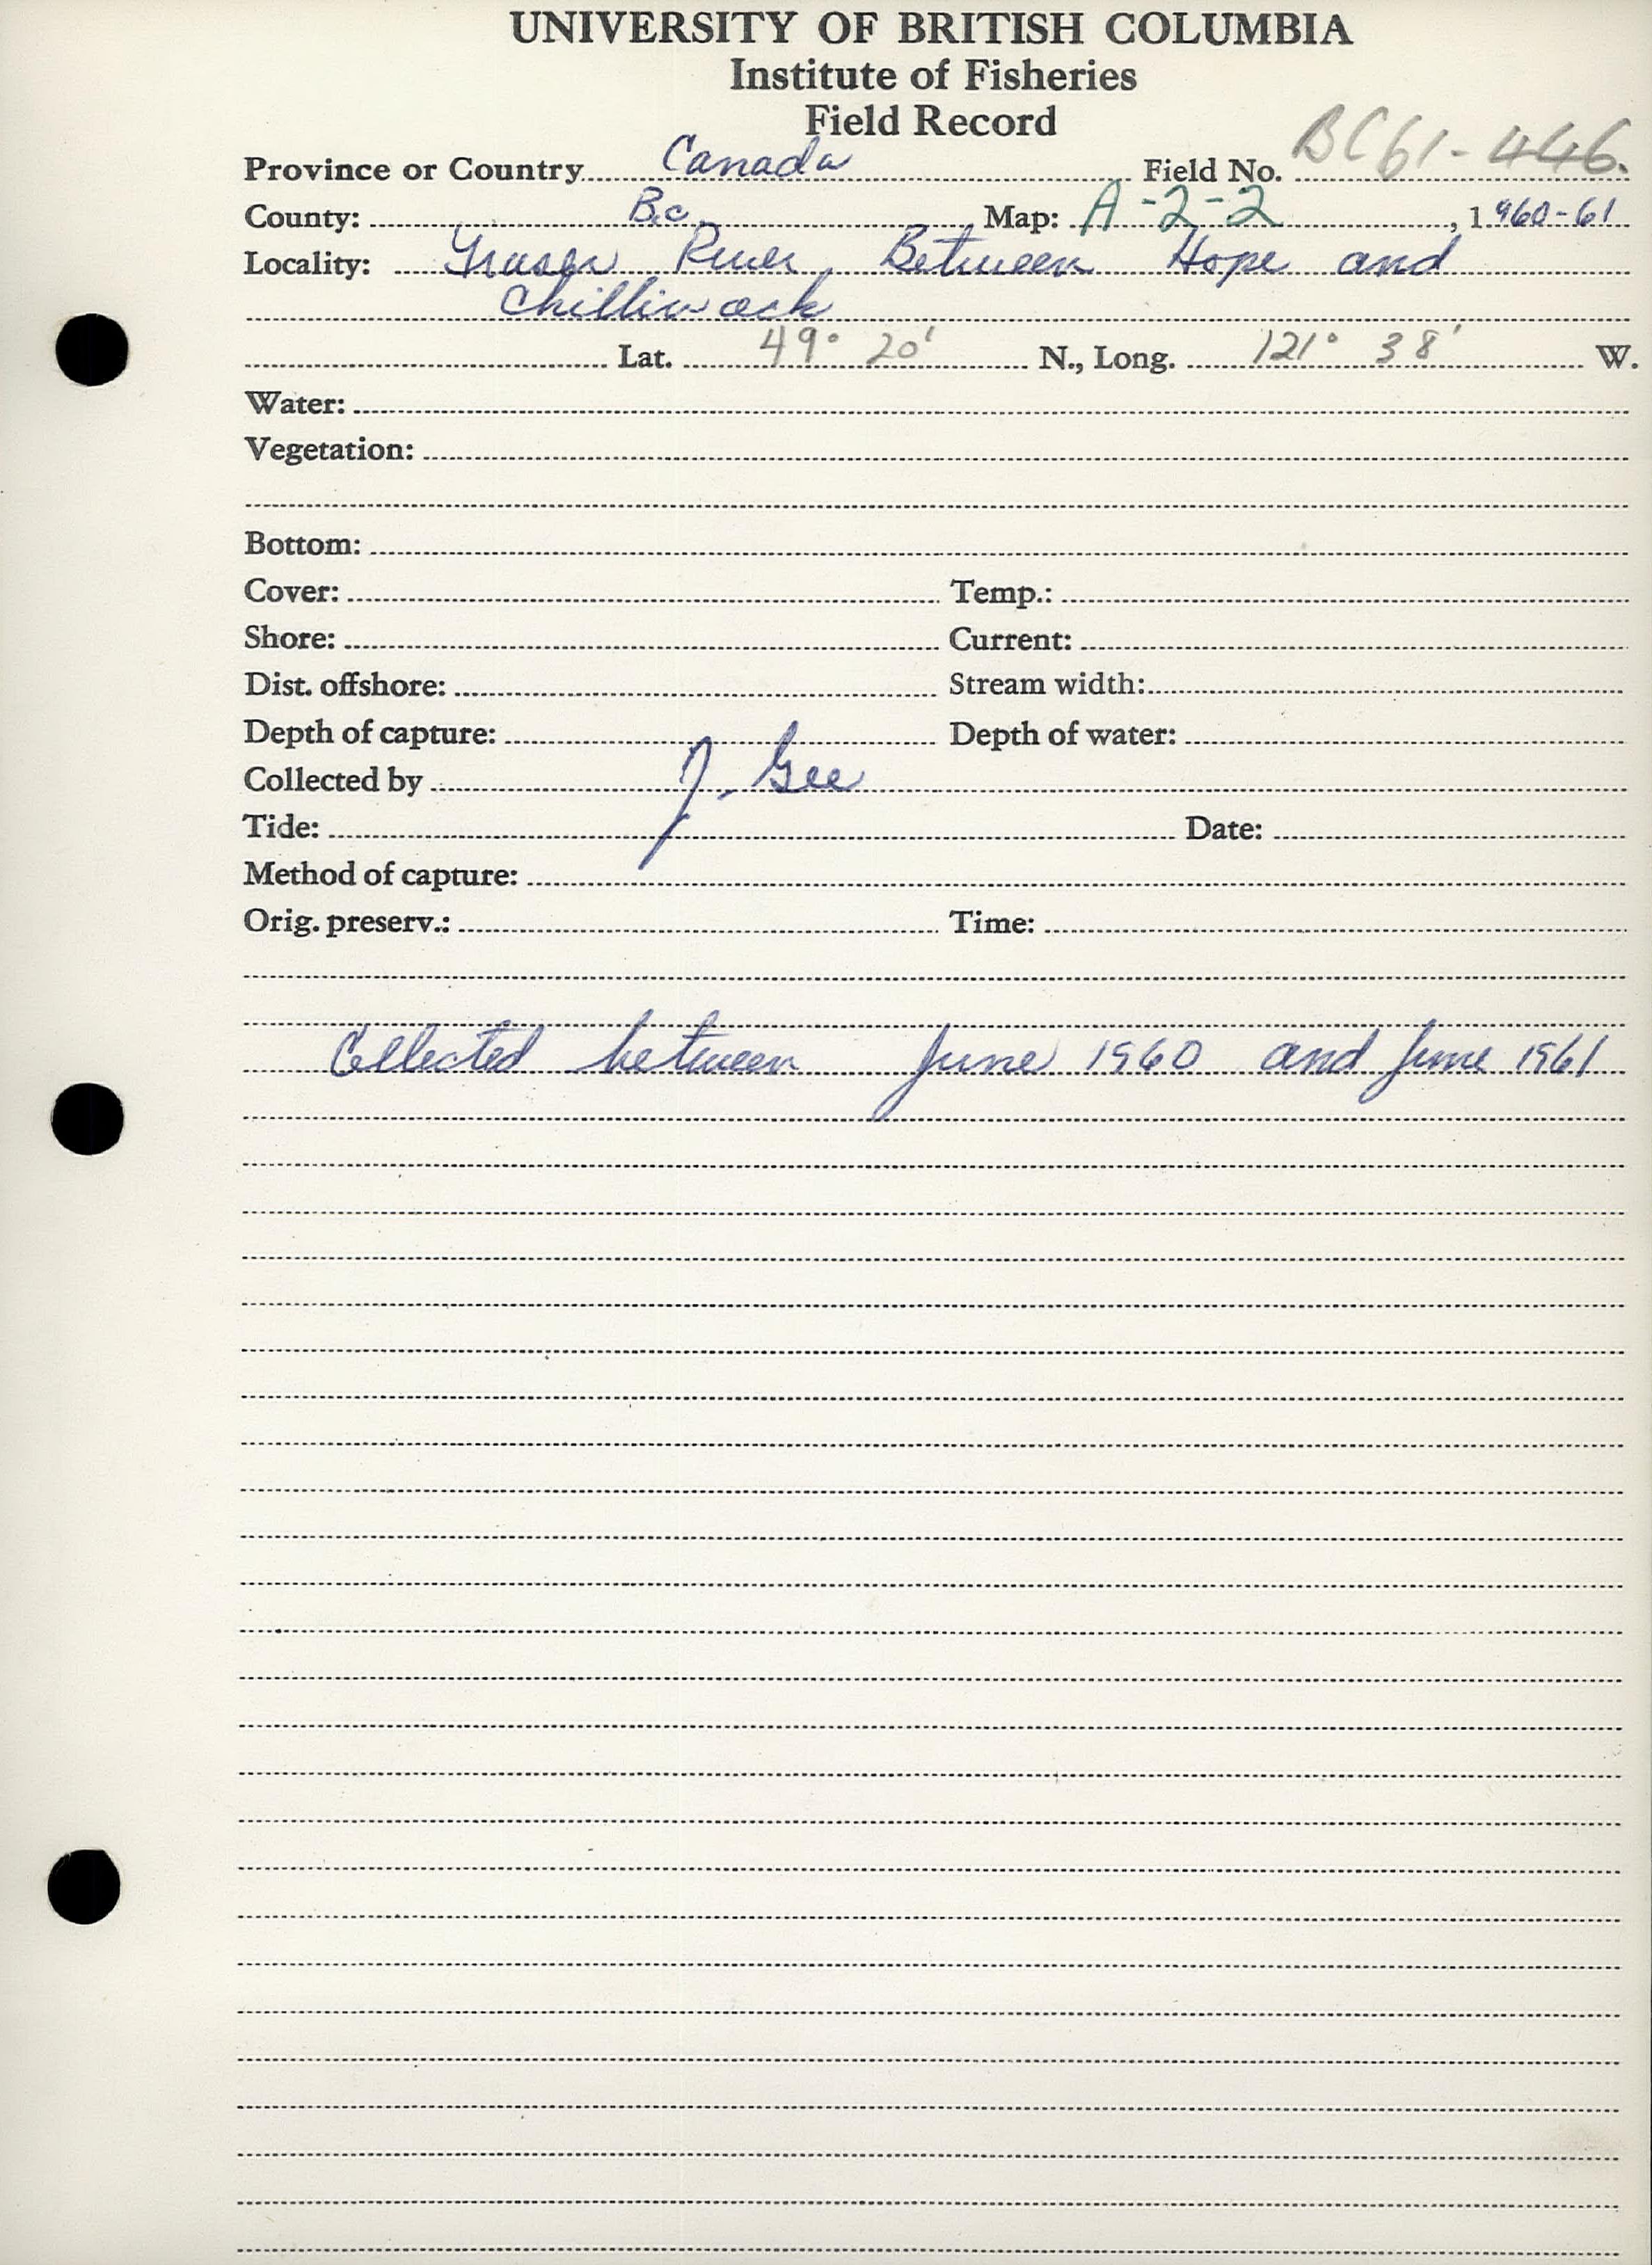 UNIVERSITY OF BRITISH COLUMBIA
Institute of Fisheries
Field Record
Province or Country Canada Field No. BC61-446.
County: B.C. Map: A-2-2, 1960-61
Locality: Fraser River Between Hope and
Chilliwack
Lat. 49° 20' N., Long. 121° 38' W.
Water:
Vegetation:
Bottom:
Cover: Temp.:
Shore: Current:
Dist. offshore: Stream width:
Depth of capture: Depth of water:
Collected by J. Gee
Tide: Date:
Method of capture:
Orig. preserv.: Time:
Collected between June 1960 and June 1961